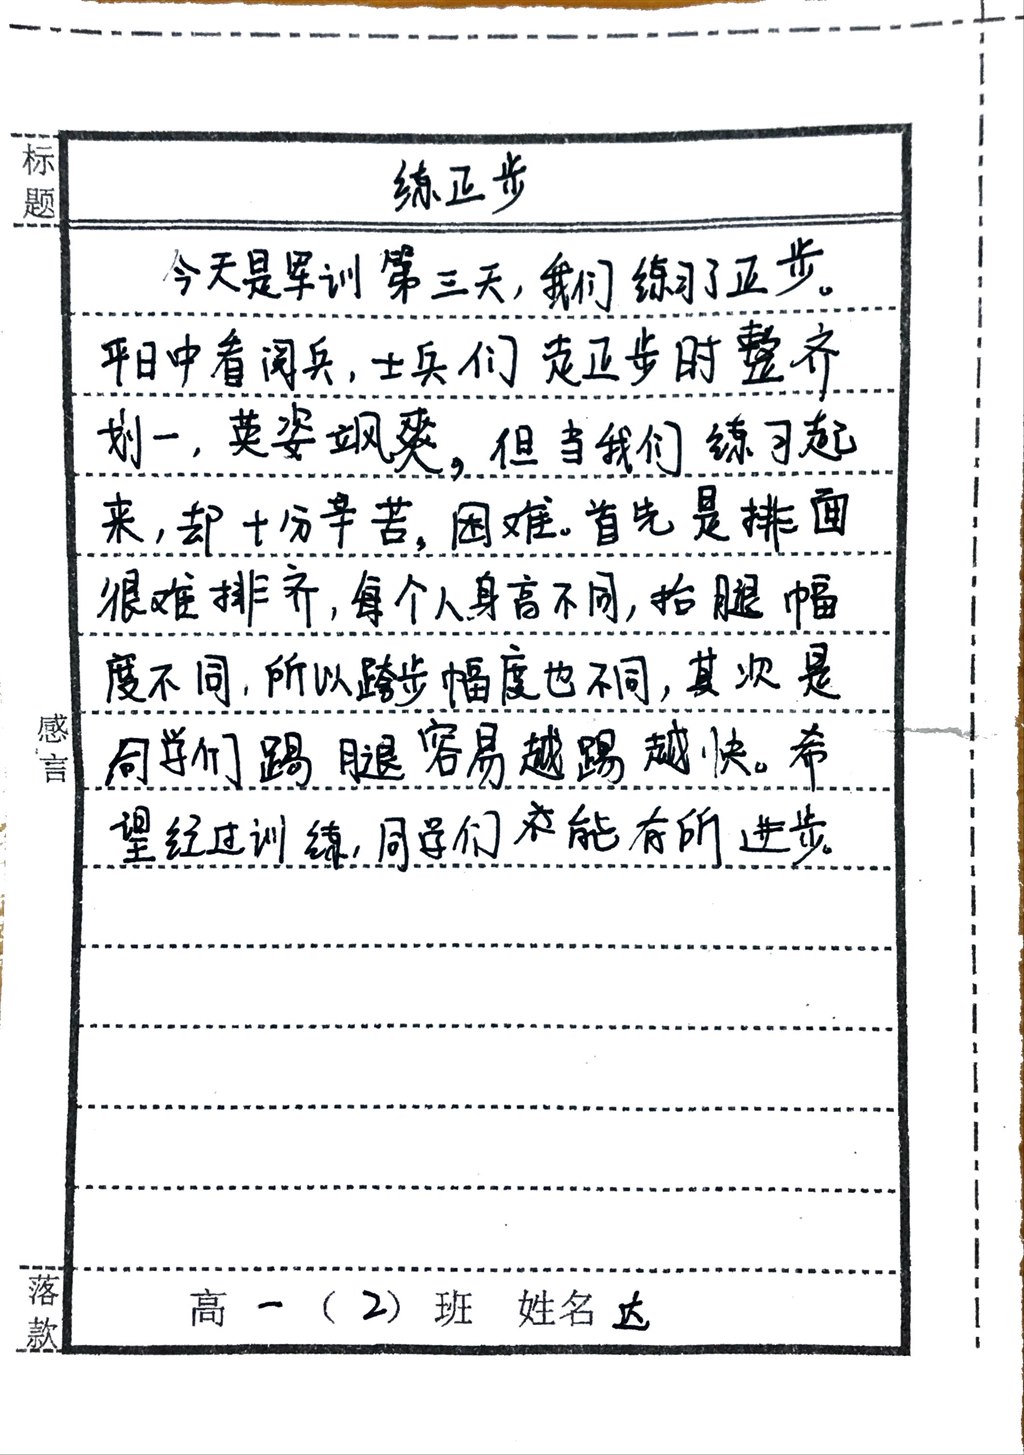 标题
练正步
今天是军训第三天,我们练习了正步。
平日中看阅兵,士兵们走正步时整齐
划一,英姿飒爽,但当我们练习起
来,却十分辛苦,困难。首先是排面
很难排齐,每个人身高不同,抬腿幅
度不同,所以跨步幅度也不同,其次是
同学们踢腿容易越踢越快。希
望经过训练,同学们能有所进步。
感言
落款
高一(2)班 姓名达